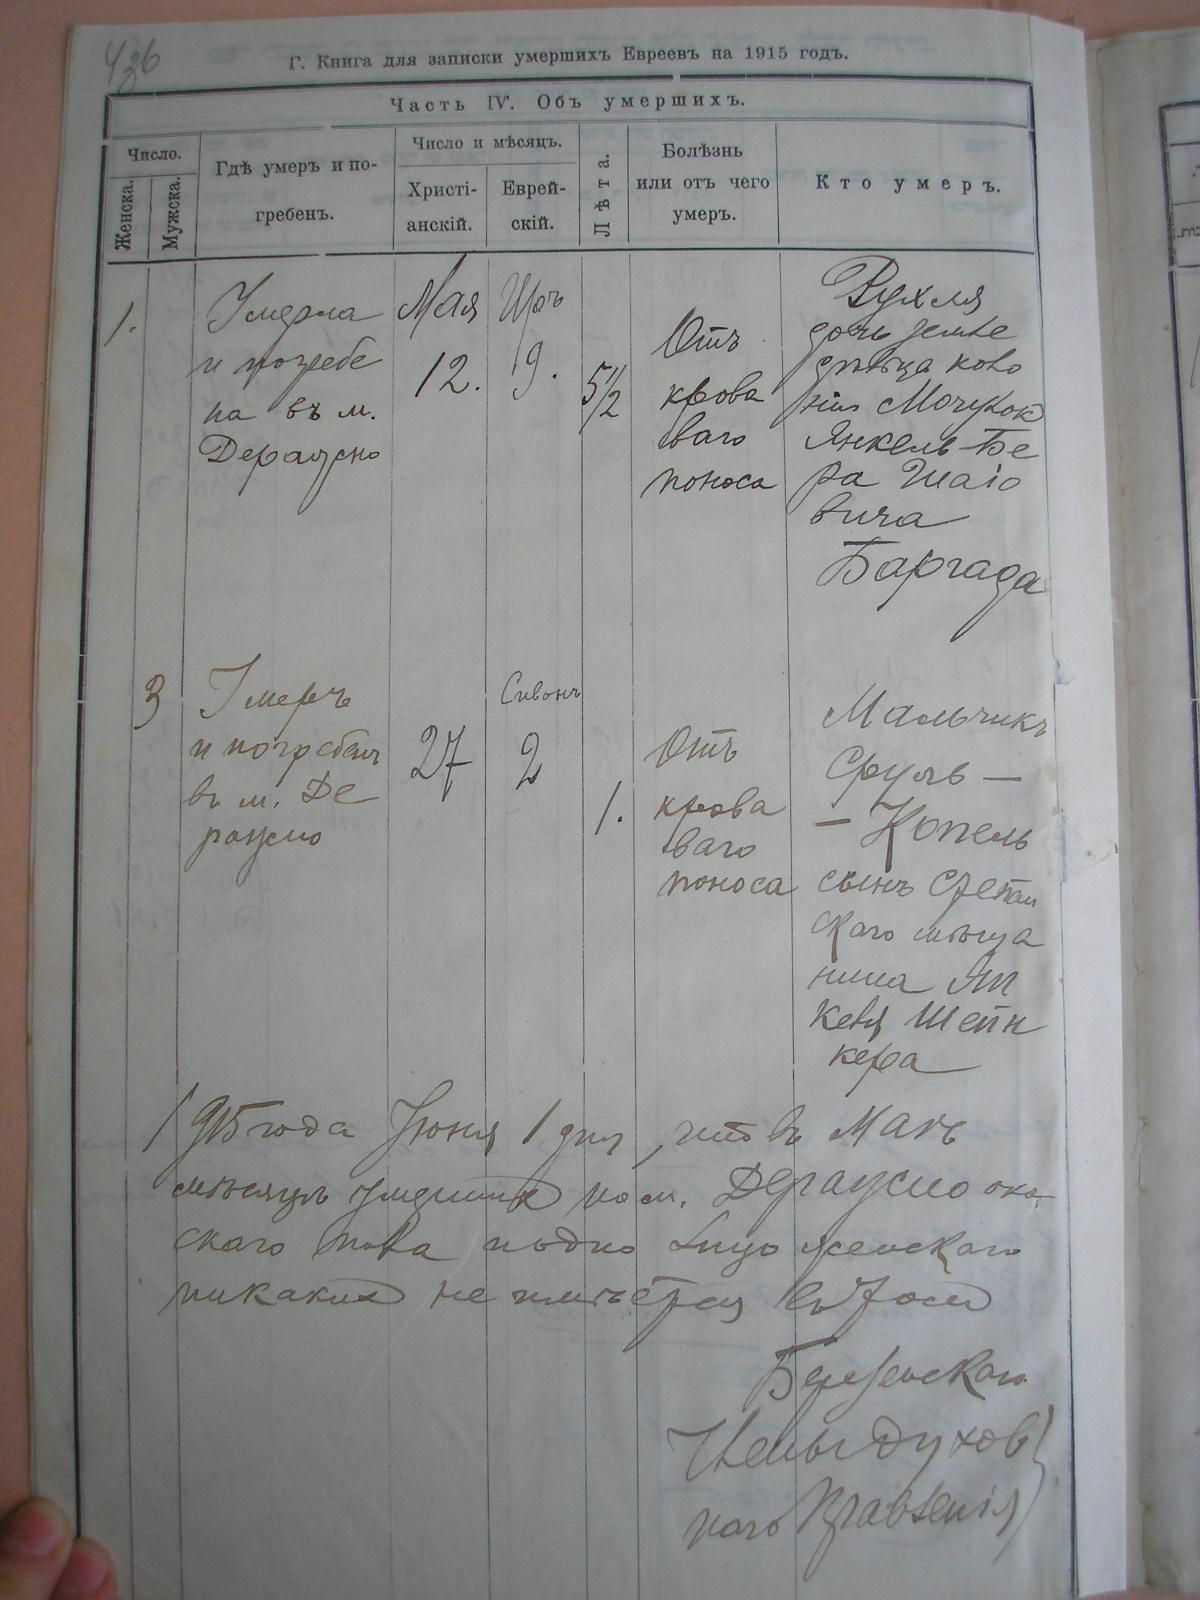 436
Г. Книга для записки умершихъ Евреевъ на 1915 годъ.
Часть IV. Объ умершихъ.
Число.
Женска.
Мужска.
Гдѣ умеръ и по-
гребенъ.
Число и мѣсяцъ.
Христі-
анскій.
Еврей-
скій.
Лѣта.
Болѣзнь
или отъ чего
умеръ.
Кто умеръ.
1.
Умерла
и погребе
на въ м.
Деражно
Мая
12.
Іиръ
9.
5 1/2
Отъ
крова
ваго
поноса
Рухля
дочь земле
дѣльца коло
ніи
Янкель-Бе
ра Шаіо
вича
Баргада
3
Умеръ
и погребенъ
въ м. Де
ражно
27
Сивонъ
2
1.
Отъ
крова
ваго
поноса
Мальчикъ
Сруль —
— Копель
сынъ Степан
скаго мѣща
нина Ян
келя Штейн
кера
1915 года Іюня 1 дня, что въ Маѣ
мѣсяцѣ умершихъ по м. Деражно
скаго пола женскаго
никакихъ не имѣется
Березенскаго
Члены Духов
наго Правленія